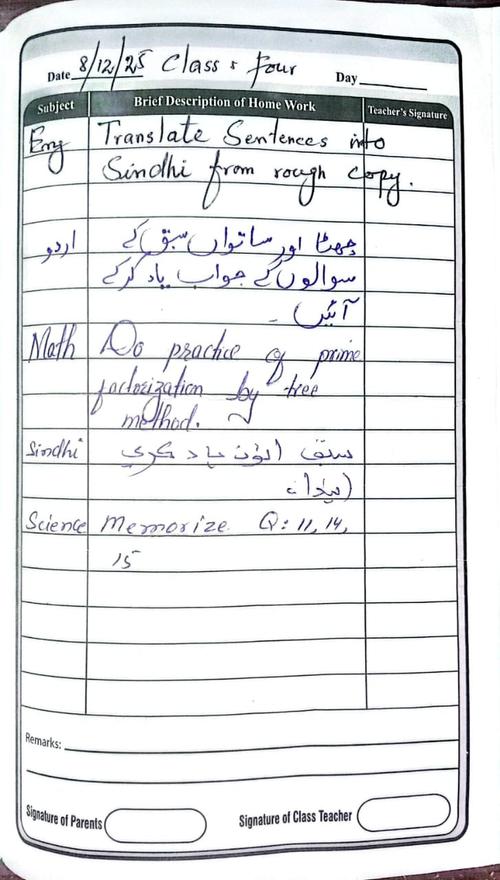 Date 8/12/25 Class : Four Day
Subject Brief Description of Home Work Teacher's Signature
Eng Translate Sentences into
Sindhi from rough copy.
اردو چھٹا اور ساتواں سبق کے
سوالوں کے جواب یاد کرکے
آئیں ۔
Math Do practice of prime
factorization by tree
method.
Sindhi سبق اٺون ياد ڪري
Science Memorize Q: 11, 14,
15
Remarks:
Signature of Parents Signature of Class Teacher